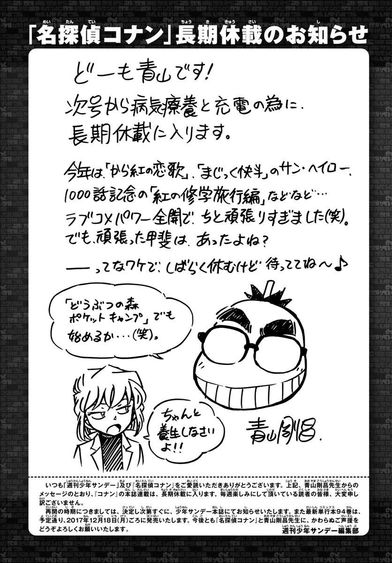 「名探偵コナン」長期休載のお知らせ
どーも青山です!
次号から病気療養と充電の為に、
長期休載に入ります。
今年は、「から紅の恋歌」、「まじっく快斗」のサン・ヘイロー、
1000話記念の「紅の修学旅行編」などなど…
ラブコメパワー全開で、ちと頑張りすぎました(笑)。
でも、頑張った甲斐は、あったよね?
——ってなワケで、しばらく休むけど待っててね〜♪
「どうぶつの森
ポケットキャンプ」でも
始めるか…(笑)。
ちゃんと
養生しなさい
よ!!
青山剛昌.
いつも「週刊少年サンデー」及び「名探偵コナン」をご愛読いただきありがとうございます。上記、青山剛昌先生からの
メッセージのとおり、「コナン」の本誌連載は、長期休載に入ります。毎週楽しみにして頂いている読者の皆様、大変申し
訳ございません。
再開の時期につきましては、決定し次第すぐに、少年サンデー本誌にてお知らせいたします。また最新単行本94巻は、
予定通り、2017年12月18日(月)ごろに発売いたします。今後とも「名探偵コナン」と青山剛昌先生に、かわらぬご声援を
どうぞよろしくお願いいたします。
週刊少年サンデー編集部